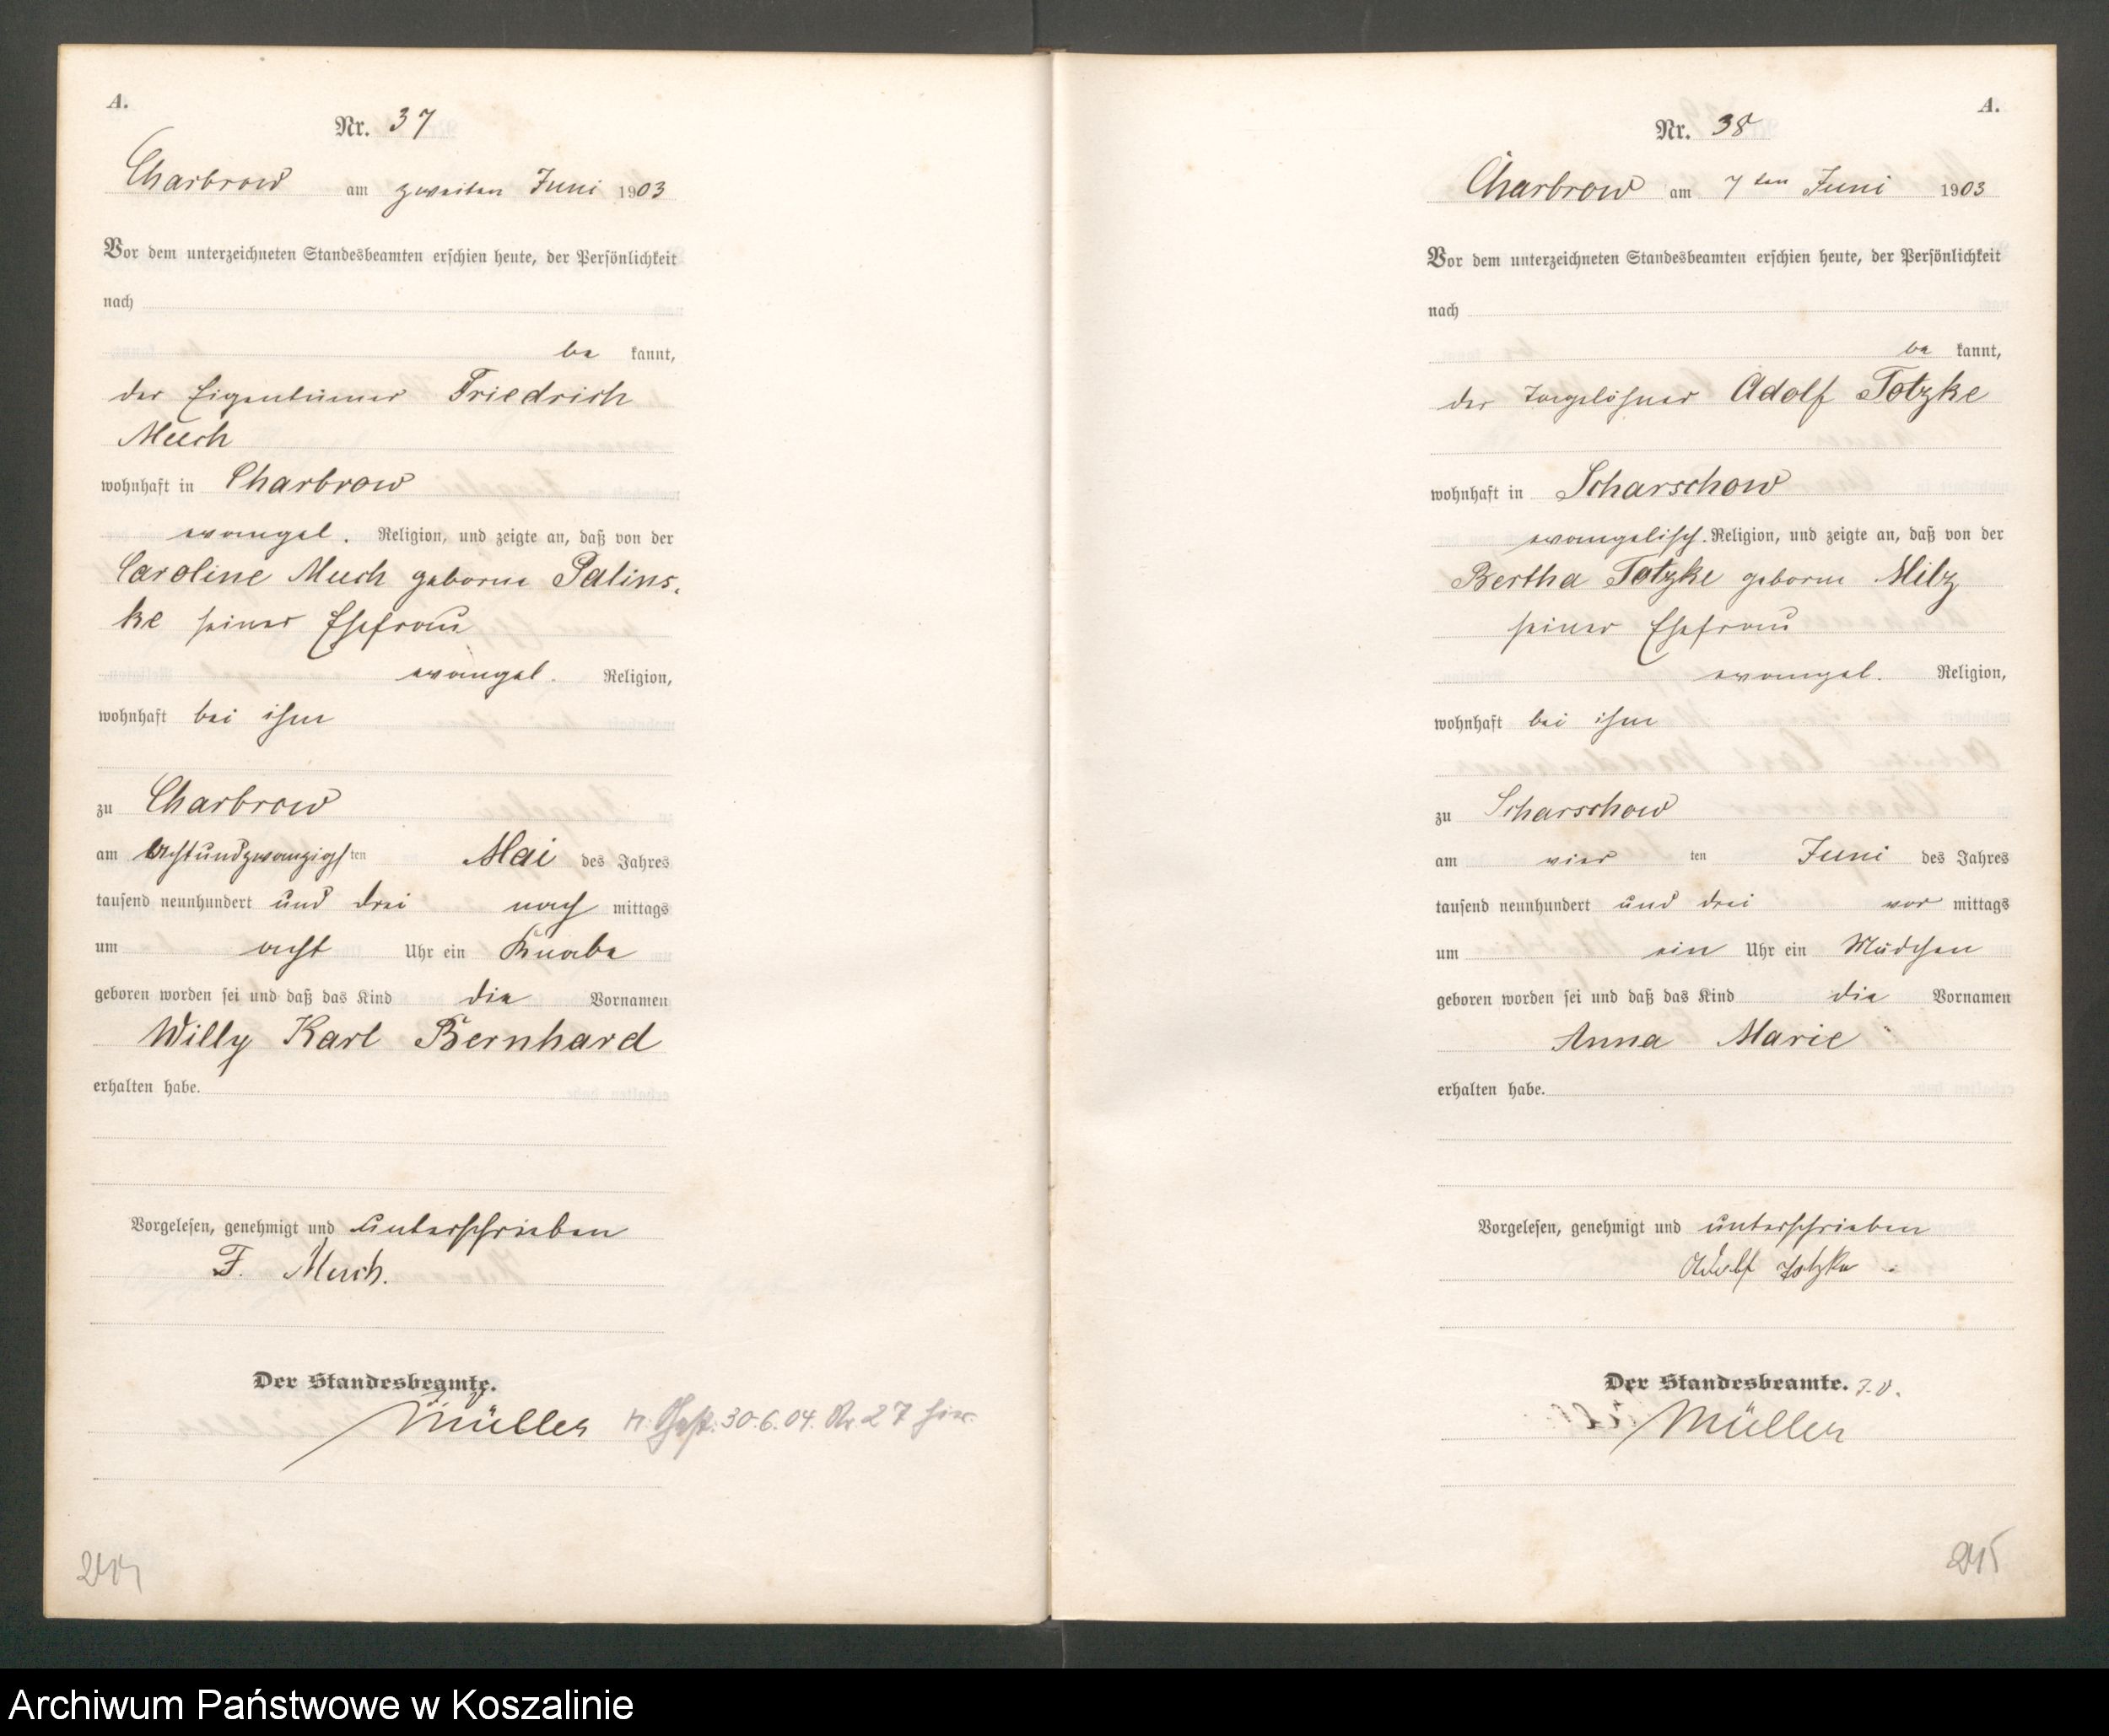 A.
Nr. 37
Charbrow am zweiten Juni 1903
Vor dem unterzeichneten Standesbeamten erschien heute, der Persönlichkeit
nach
be kannt,
der Eigentümer Friedrich
Much
wohnhaft in Charbrow
evangel. Religion, und zeigte an, daß von der
Caroline Much geborne Palins-
ke seiner Ehefrau
evangel. Religion,
wohnhaft bei ihm
zu Charbrow
am achtundzwanzigsten Mai des Jahres
tausend neunhundert und drei nach mittags
um acht Uhr ein Knabe
geboren worden sei und daß das Kind die Vornamen
Willy Karl Bernhard
erhalten habe.
Vorgelesen, genehmigt und unterschrieben
F. Much.
Der Standesbeamte.
J. V.
Müller
30.6.04. Nr. 27
A.
Nr. 38
Charbrow am 7ten Juni 1903
Vor dem unterzeichneten Standesbeamten erschien heute, der Persönlichkeit
nach
be kannt,
der Tagelöhner Adolf Totzke
wohnhaft in Scharschow
evangelisch. Religion, und zeigte an, daß von der
Bertha Totzke geborne Milz
seiner Ehefrau
evangel. Religion,
wohnhaft bei ihm
zu Scharschow
am vier ten Juni des Jahres
tausend neunhundert und drei vor mittags
um ein Uhr ein Mädchen
geboren worden sei und daß das Kind die Vornamen
Anna Marie
erhalten habe.
Vorgelesen, genehmigt und unterschrieben
Adolf Totzke
Der Standesbeamte. J. V.
Müller
215
Archiwum Państwowe w Koszalinie